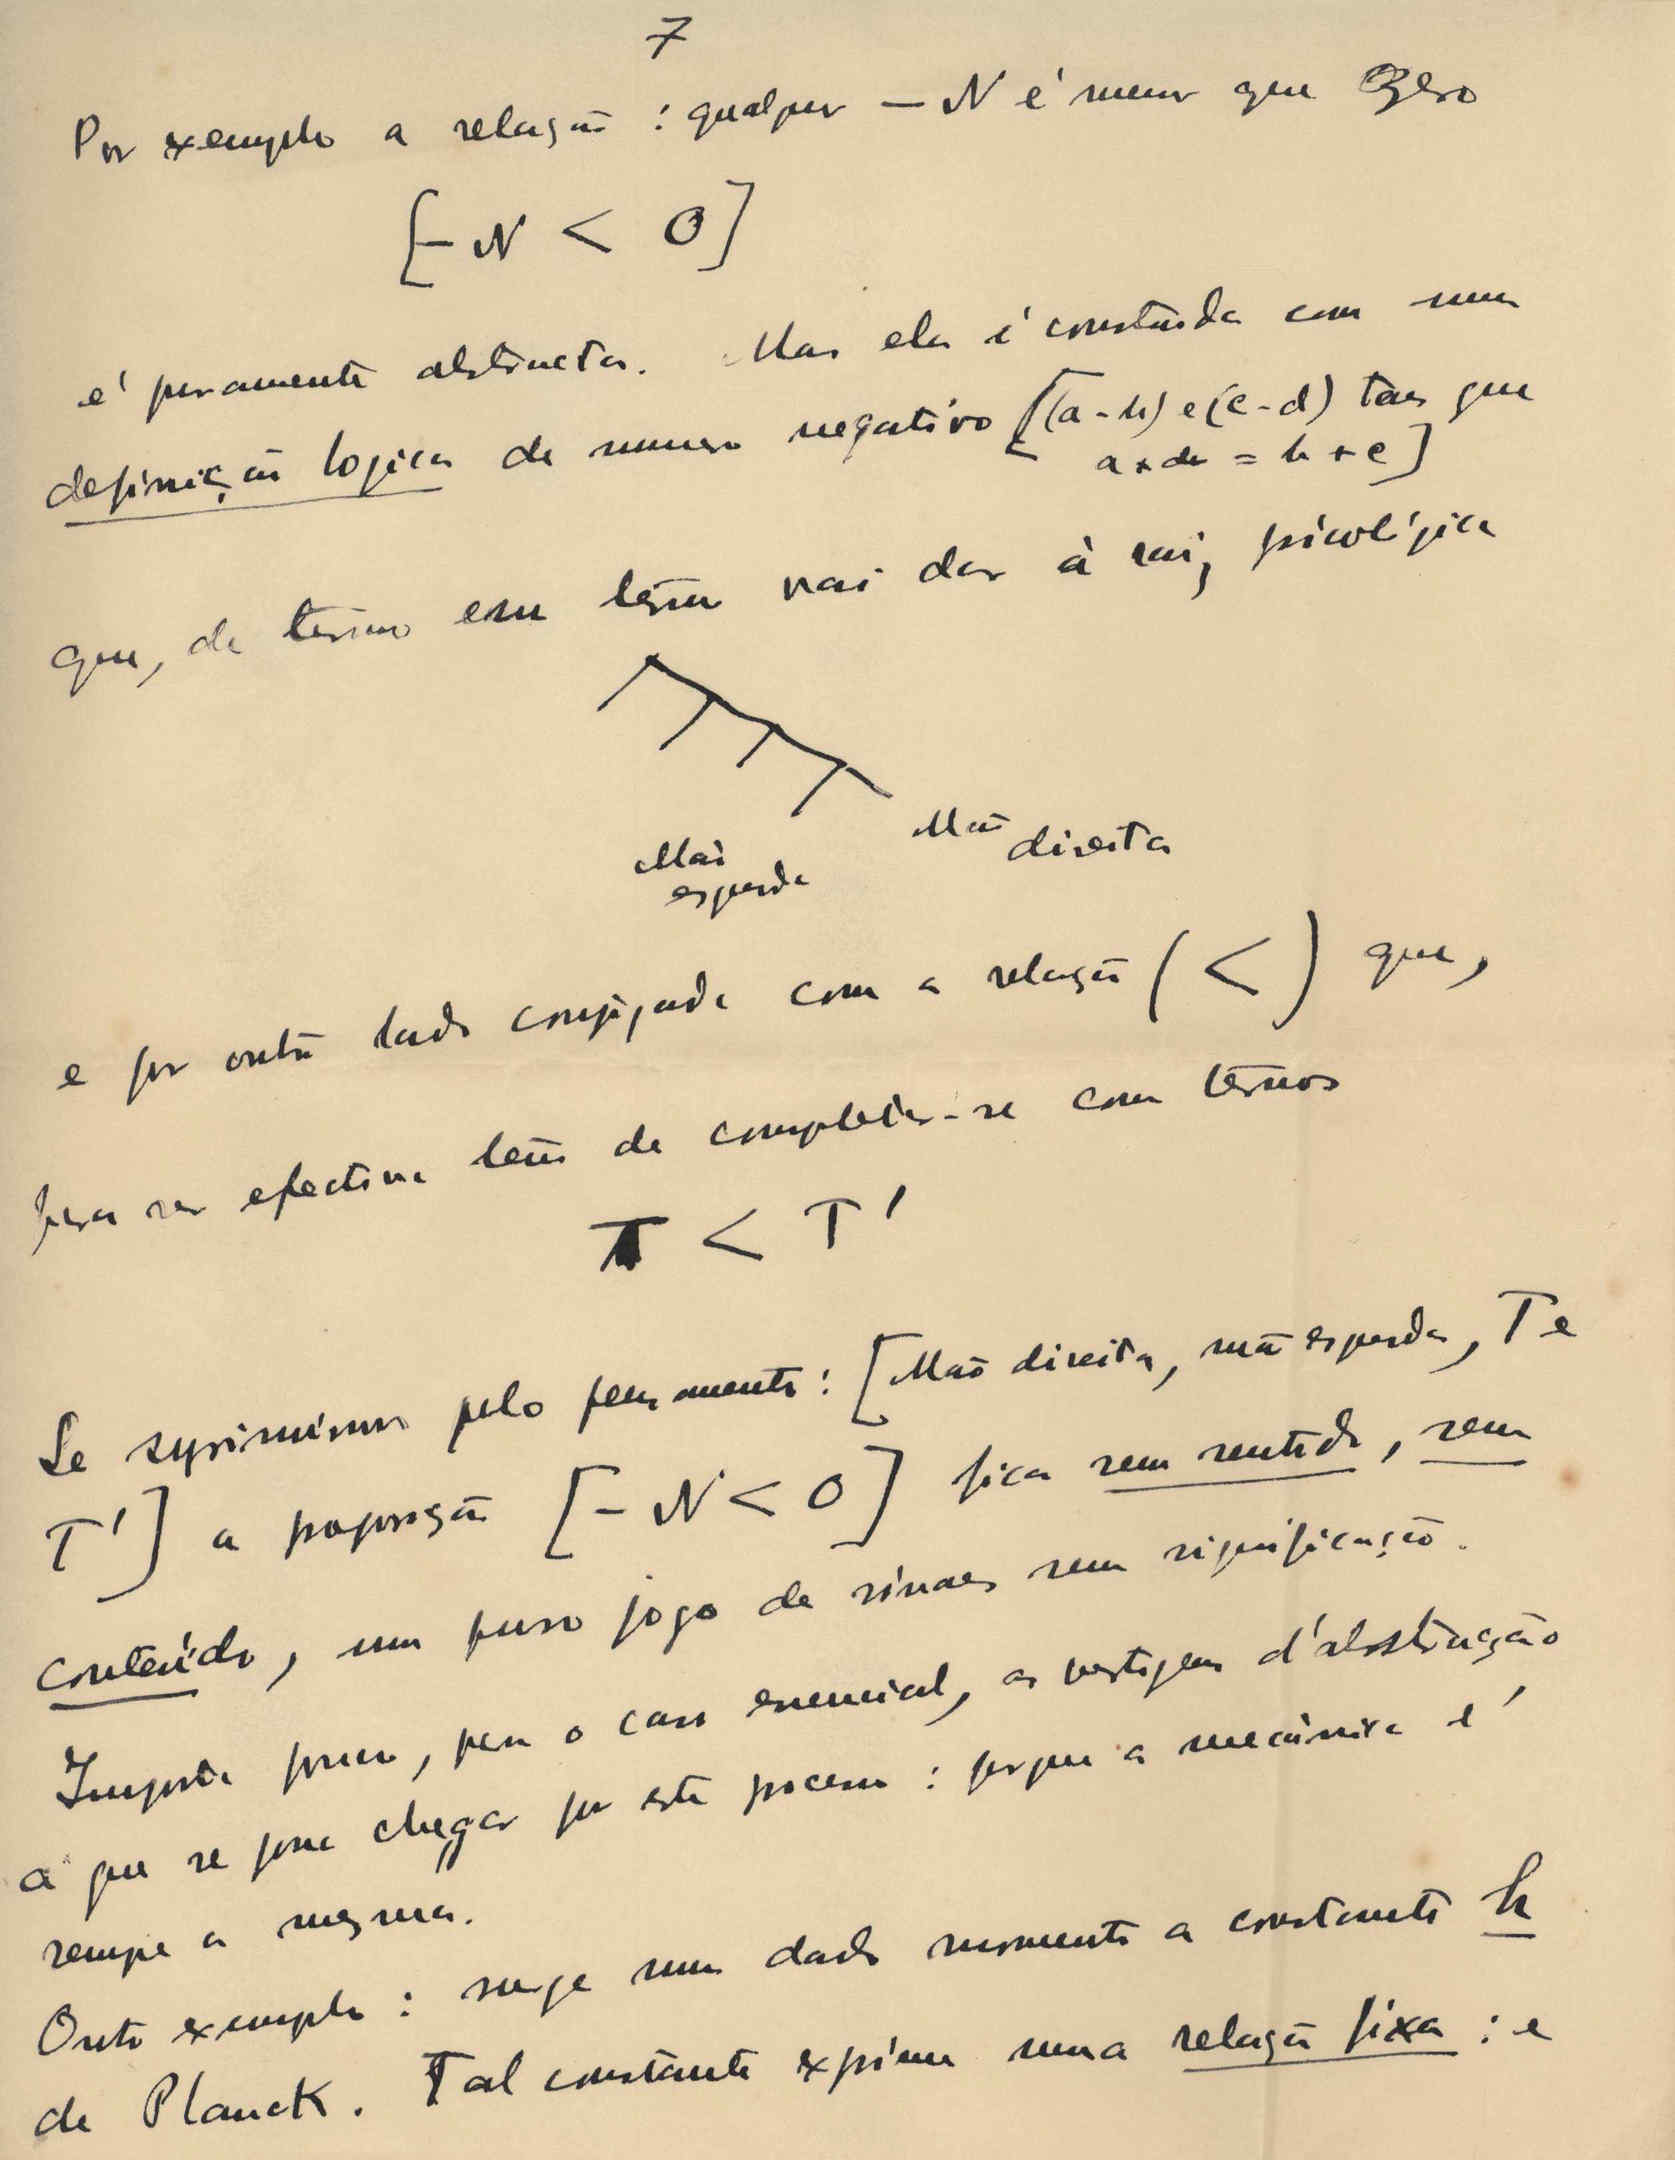 7
Por exemplo a relação : qualquer — N é menor que Zero
[- N < 0]
é puramente abstracta. Mas ela é construida com uma
definição logica de numero negativo [(a - b) e (c - d) taes que
a + d = b + c]
que, de termo em termo vai dar à raiz psicológica
Mão direita
Mão esquerda
e por outro lado conjugada com a relação ( < ) que,
para ser efectiva tem de completar-se com termos
T < T'
Se suprimirmos pelo pensamento : [Mão direita, mão esquerda, T e
T'] a proposição [- N < 0] fica sem sentido, sem
conteúdo, um puro jogo de sinaes sem significação.
Importa pouco, para o caso essencial, as vertigens d'abstracção
a que se possa chegar por este processo : porque a mecânica é
sempre a mesma.
Outro exemplo : surge num dado momento a constante h
de Planck. Tal constante exprime uma relação fixa : e